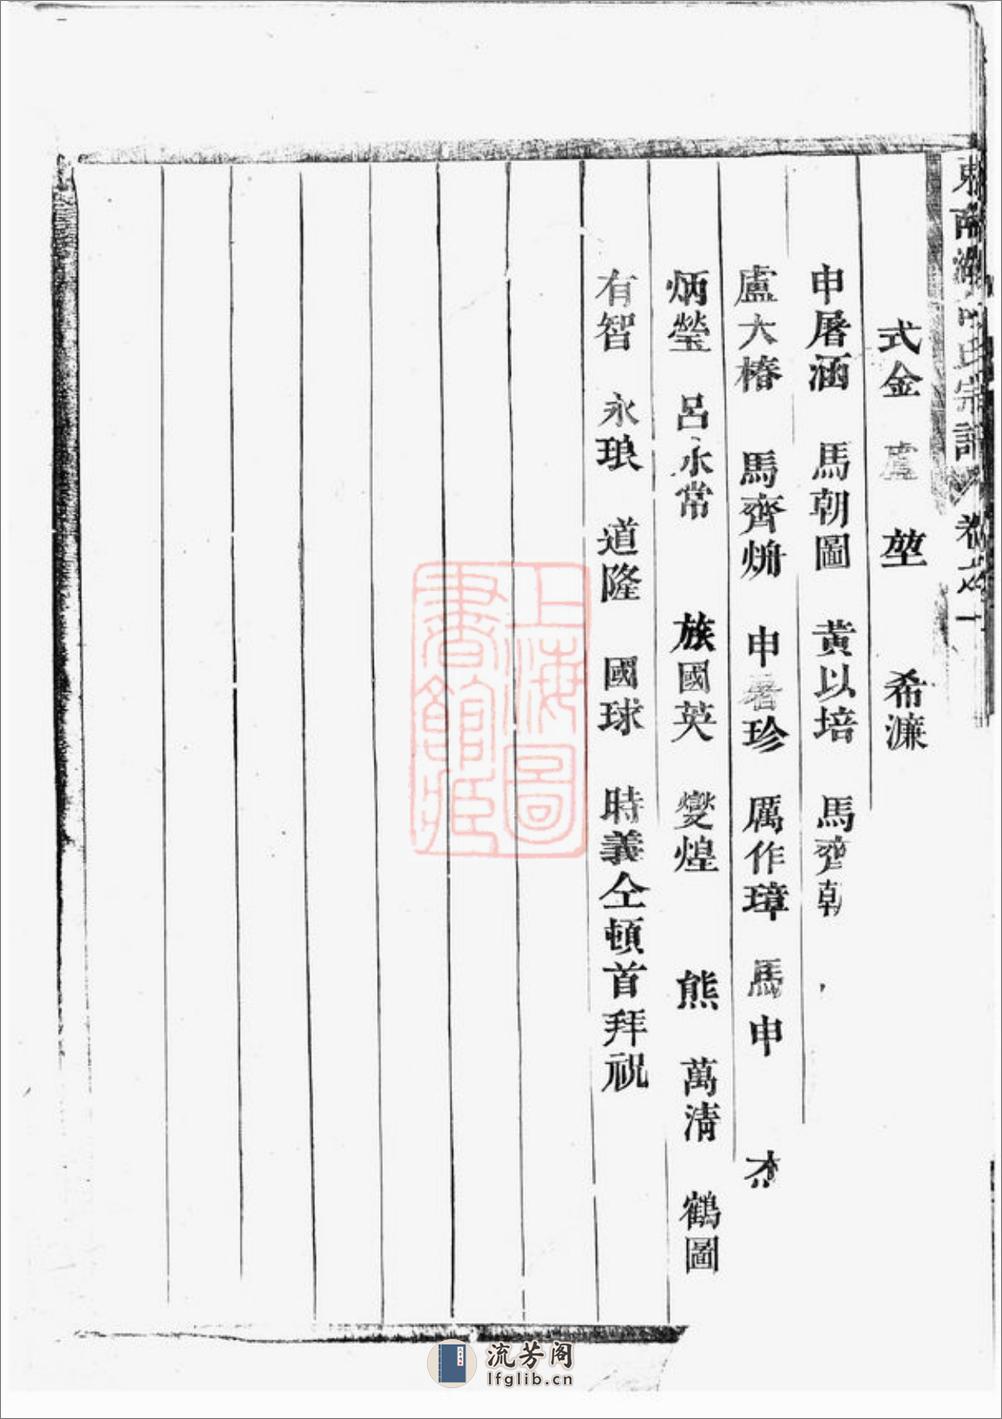 東南湖 氏宗譜 卷之十
式金 盧 堃 希濂
申屠涵 馬朝圖 黃以培 馬齊朝
盧大椿 馬齊 申屠珍 厲作璋 馬申 杰
炳瑩 呂永常 族國英 燮煌 熊 萬清 鶴圖
有智 永琅 道隆 國球 時義仝頓首拜祝
上海圖
書館藏
流芳阁
lfglib.cn